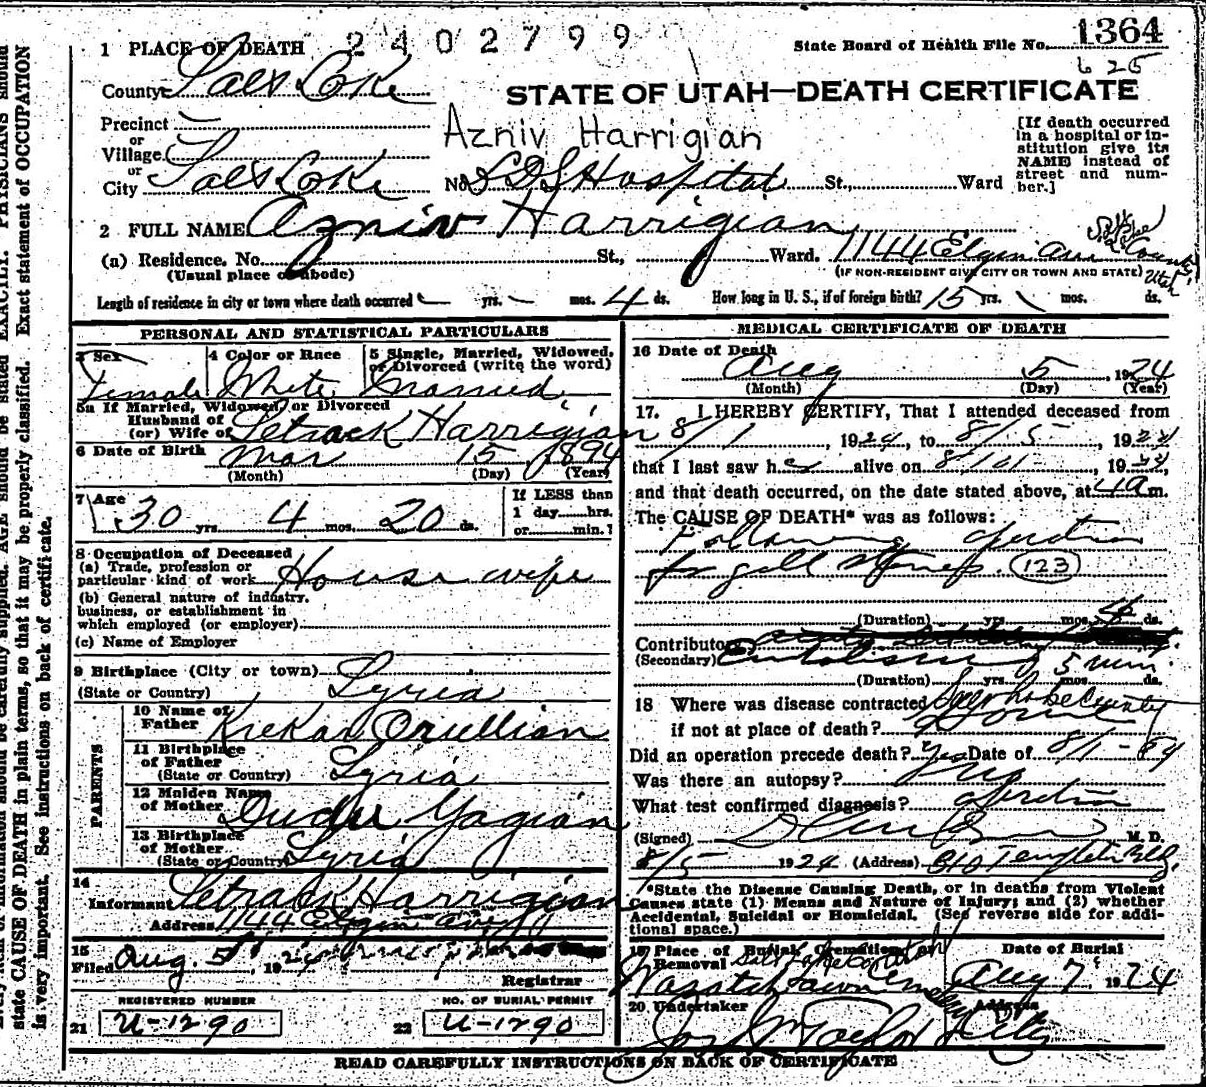 2402799
1364
625
1 PLACE OF DEATH
State Board of Health File No.
County Salt Lake
STATE OF UTAH—DEATH CERTIFICATE
Precinct
Azniv Harrigian
or
Village
or
City Salt Lake No. LDS Hospital St., Ward
[If death occurred
in a hospital or in-
stitution give its
NAME instead of
street and num-
ber.]
2 FULL NAME Azniv Harrigian
(a) Residence. No. St., Ward. 1144 Elgin Ave Salt Lake County Utah
(Usual place of abode) (IF NON-RESIDENT GIVE CITY OR TOWN AND STATE)
Length of residence in city or town where death occurred — yrs. — mos. 4 ds. How long in U. S., if of foreign birth? 15 yrs. mos. ds.
PERSONAL AND STATISTICAL PARTICULARS
3 Sex
Female
4 Color or Race
White
5 Single, Married, Widowed,
or Divorced (write the word)
Married
5a If Married, Widowed, or Divorced
Husband of
(or) Wife of Setrack Harrigian
6 Date of Birth Mar 15 1894
(Month) (Day) (Year)
7 Age
30 yrs. 4 mos. 20 ds.
If LESS than
1 day hrs.
or min.?
8 Occupation of Deceased
(a) Trade, profession or
particular kind of work House wife
(b) General nature of industry,
business, or establishment in
which employed (or employer)
(c) Name of Employer
9 Birthplace (City or town)
(State or Country) Syria
PARENTS
10 Name of
Father Krekar Orullian
11 Birthplace
of Father
(State or Country) Syria
12 Maiden Name
of Mother Yagian
13 Birthplace
of Mother
(State or Country) Syria
14
Informant Setrack Harrigian
Address 1144 Elgin ave
15
Filed Aug. 5, 1924
Registrar
REGISTERED NUMBER
21 U-1290
NO. OF BURIAL PERMIT
22 U-1290
MEDICAL CERTIFICATE OF DEATH
16 Date of Death
Aug 5 1924
(Month) (Day) (Year)
17. I HEREBY CERTIFY, That I attended deceased from
8/1, 1924, to 8/5, 1924
that I last saw her alive on , 1924,
and that death occurred, on the date stated above, at 4 a m.
The CAUSE OF DEATH* was as follows:
Following operation
for gall stones. 123
(Duration) yrs. mos. 4 ds.
Contributory
(Secondary) Embolism 5 min.
(Duration) yrs. mos. ds.
18 Where was disease contracted Salt Lake County
if not at place of death?
Did an operation precede death? Yes Date of 8/1-24
Was there an autopsy? No
What test confirmed diagnosis? Operation
(Signed) M. D.
8/5 1924 (Address) Templeton Bldg.
*State the Disease Causing Death, or in deaths from Violent
Causes state (1) Means and Nature of Injury; and (2) whether
Accidental, Suicidal or Homicidal. (See reverse side for addi-
tional space.)
19 Place of Burial, Cremation or
Removal Salt Lake Co Utah
Wasatch Lawn Cemetery
Date of Burial
Aug 7 1924
20 Undertaker
Address
Jos Wm Taylor City
READ CAREFULLY INSTRUCTIONS ON BACK OF CERTIFICATE
state CAUSE OF DEATH in plain terms, so that it may be properly classified. Exact statement of OCCUPATION
is very important. See instructions on back of certificate.